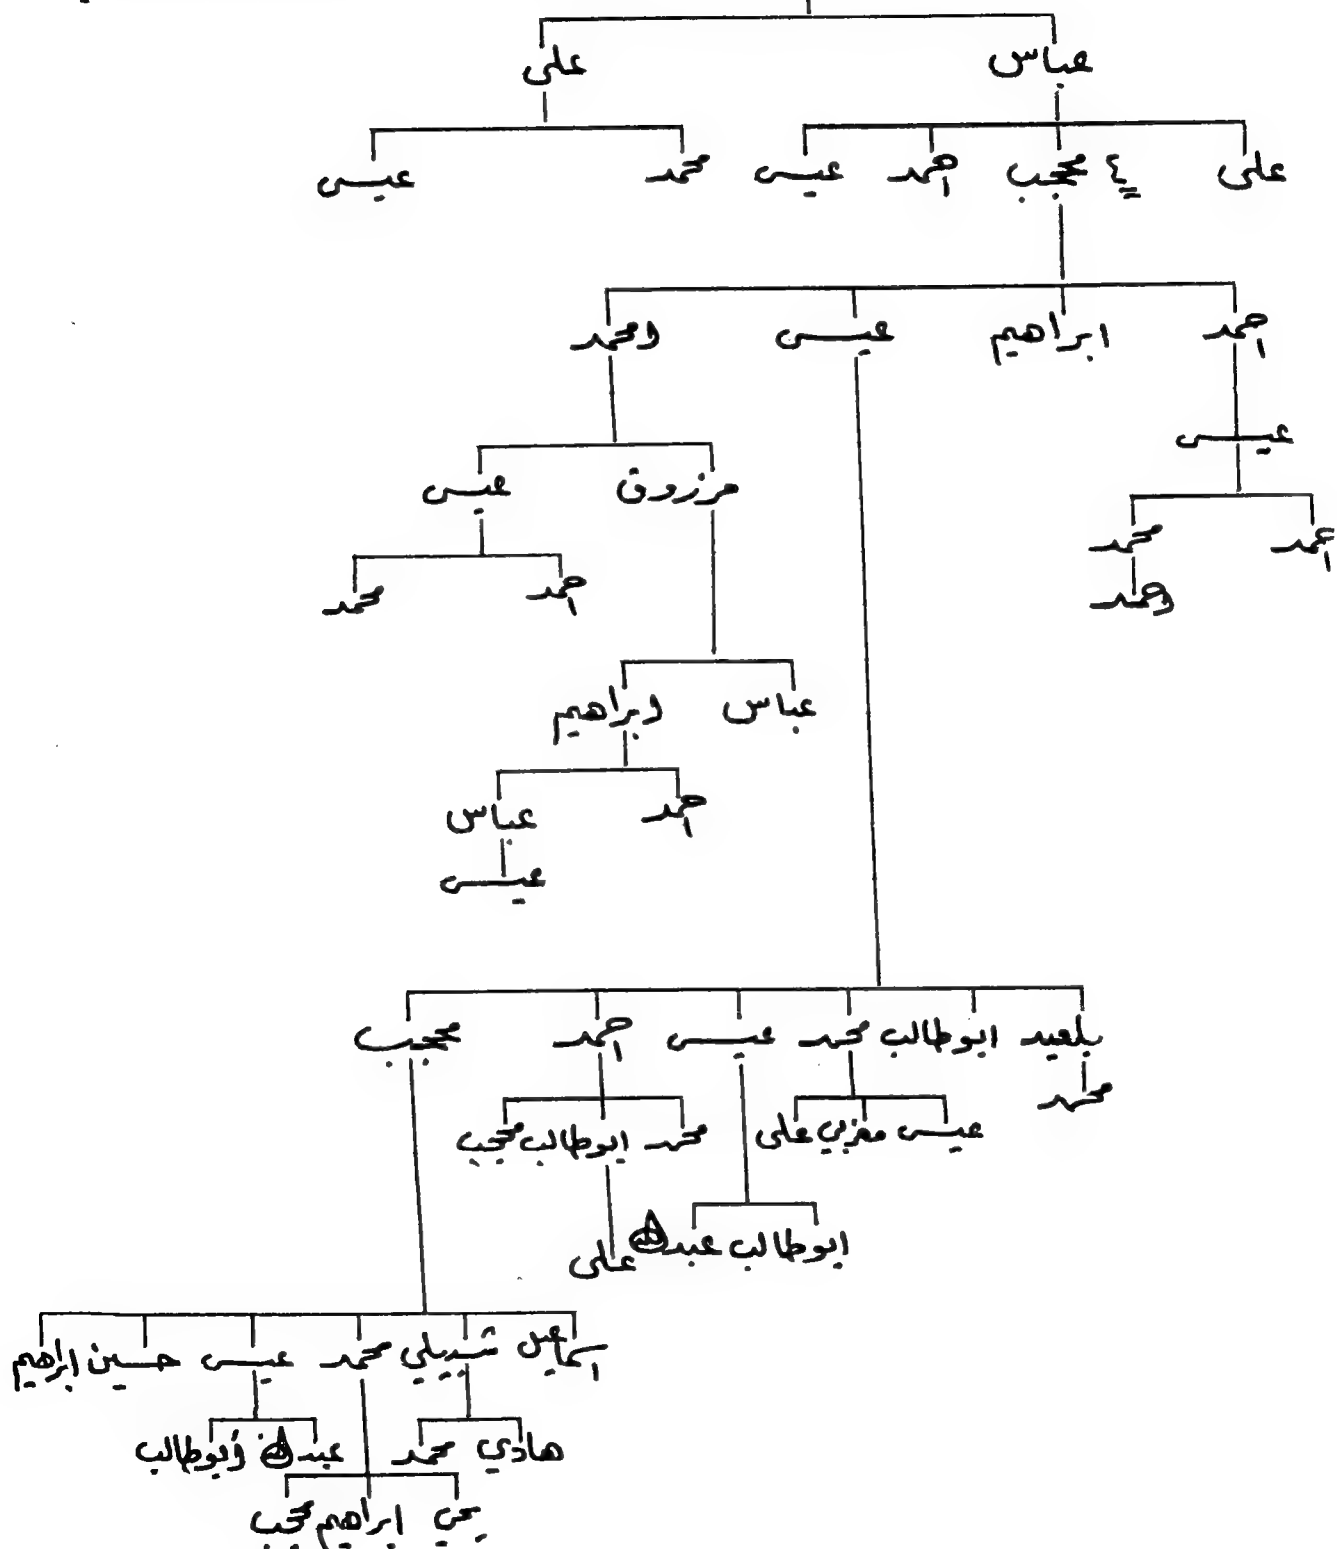 عباس علي
علي ٤ محجب احمد عيسى محمد عيسى
احمد ابراهيم عيسى امحمد
عيسى
مرزوق عيسى
احمد محمد
احمد
احمد محمد
عباس ابراهيم
احمد عباس
عيسى
بلعيد ابوطالب محمد عيسى احمد محجب
محمد
عيسى مغربي علي محمد ابوطالب محجب
ابوطالب عبدالله علي
اسماعيل شديلي محمد عيسى حسين ابراهيم
هادي محمد عبدالله وأبوطالب
يحي ابراهيم محجب